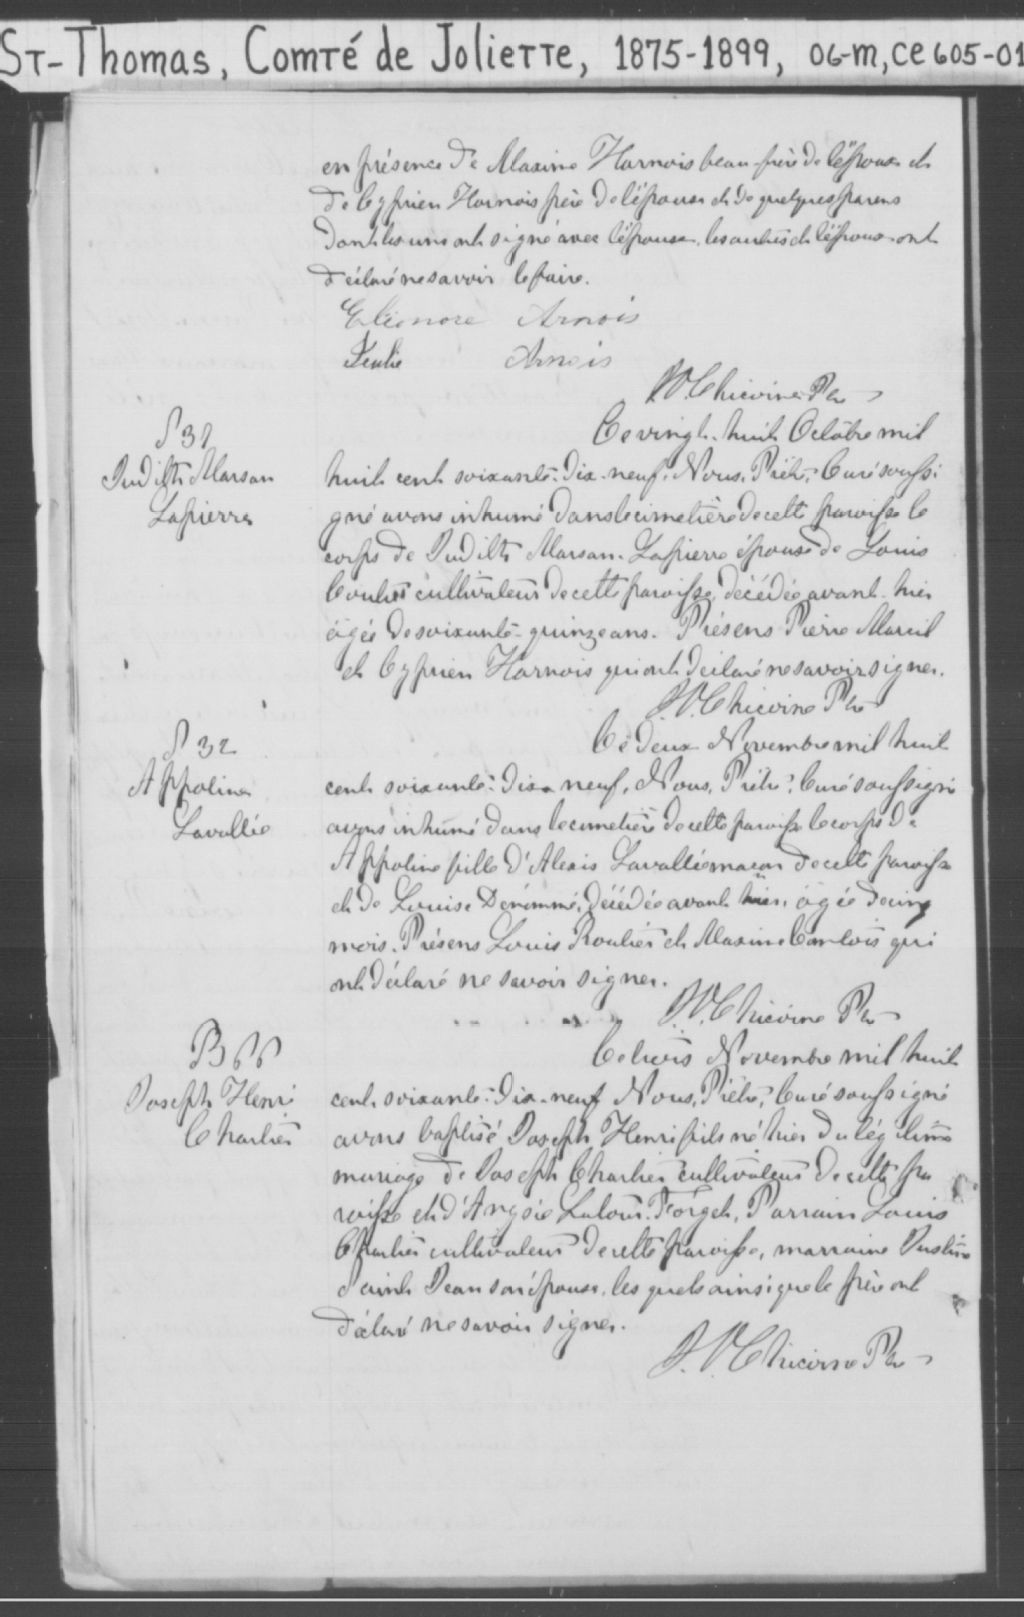 ST-Thomas, Comté de Joliette, 1875-1899, 06-M, CE 605-01
en présence de Maxime Harnois beau-frère de l'époux et
de Cyprien Harnois frère de l'épouse et de quelques parens
dont les uns ont signé avec l'épouse, les autres et l'époux ont
déclaré ne savoir le faire.
Eléonore Arnois
Julie Arnois
Chicoine Ptre
S 31
Judith Marsan
Lapierre
Ce vingt-huit Octobre mil
huit cent soixante-dix-neuf, Nous, Prêtre, Curé soussi-
gné avons inhumé dans le cimetière de cette paroisse le
corps de Judith Marsan-Lapierre épouse de Louis
cultivateur de cette paroisse, décédée avant-hier
âgée de soixante-quinze ans. Présens Pierre Mareil
et Cyprien Harnois qui ont déclaré ne savoir signer.
Chicoine Ptre
S 32
Appoline
Lavallée
Ce deux Novembre mil huit
cent soixante-dix-neuf, Nous, Prêtre, Curé soussigné
avons inhumé dans le cimetière de cette paroisse le corps de
Appoline fille d'Alexis Lavallée maçon de cette paroisse
et de Louise Dénommé, décédée avant hier, âgée de cinq
mois. Présens Louis et Maxime qui
ont déclaré ne savoir signer.
Chicoine Ptre
B 66
Joseph Henri
Charlier
Ce trois Novembre mil huit
cent soixante-dix-neuf Nous, Prêtre, Curé soussigné
avons baptisé Joseph Henri fils né hier du légitime
mariage de Joseph Charlier cultivateur de cette pa
roisse et d'Angèle Latour-Forget, Parrain Louis
Charlier cultivateur de cette paroisse, marraine Justine
Saint Jean son épouse, les quels ainsi que le père ont
déclaré ne savoir signer.
Chicoine Ptre